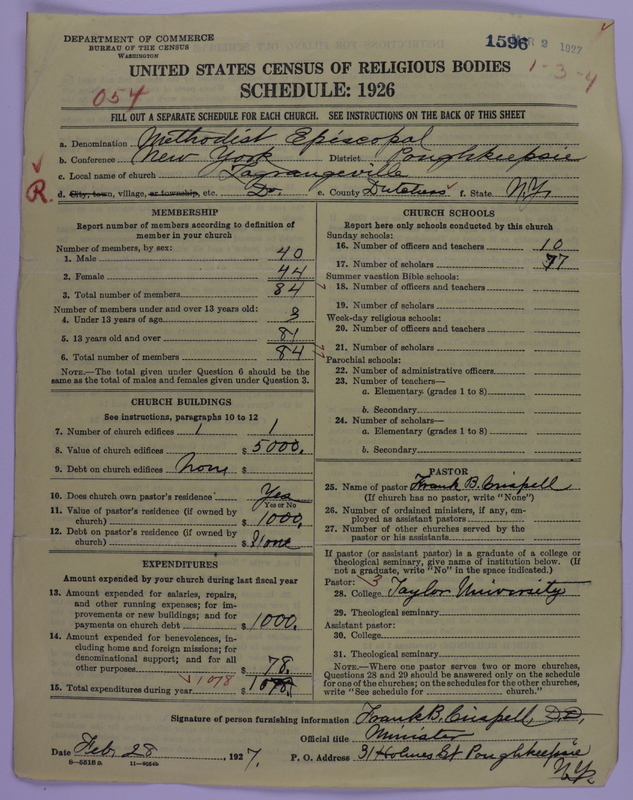 DEPARTMENT OF COMMERCE
BUREAU OF THE CENSUS
WASHINGTON
1596
MAR 2 1927
UNITED STATES CENSUS OF RELIGIOUS BODIES
1-3-4
SCHEDULE: 1926
054
FILL OUT A SEPARATE SCHEDULE FOR EACH CHURCH. SEE INSTRUCTIONS ON THE BACK OF THIS SHEET
a. Denomination Methodist Episcopal
b. Conference New York District Poughkeepsie
c. Local name of church Lagrangeville
R.
d. City, town, village, or township, etc. Do. e. County Dutchess f. State N.Y.
MEMBERSHIP
Report number of members according to definition of
member in your church
Number of members, by sex:
1. Male 40
2. Female 44
3. Total number of members 84
Number of members under and over 13 years old:
4. Under 13 years of age 3
5. 13 years old and over 81
6. Total number of members 84
NOTE.—The total given under Question 6 should be the
same as the total of males and females given under Question 3.
CHURCH BUILDINGS
See instructions, paragraphs 10 to 12
7. Number of church edifices 1 1
8. Value of church edifices $ 5000.
9. Debt on church edifices None $
10. Does church own pastor's residence Yes
Yes or No
11. Value of pastor's residence (if owned by
church) $ 1000.
12. Debt on pastor's residence (if owned by
church) $ None
EXPENDITURES
Amount expended by your church during last fiscal year
13. Amount expended for salaries, repairs,
and other running expenses; for im-
provements or new buildings; and for
payments on church debt $ 1000.
14. Amount expended for benevolences, in-
cluding home and foreign missions; for
denominational support; and for all
other purposes $ 78.
1078
15. Total expenditures during year $ 1078.
CHURCH SCHOOLS
Report here only schools conducted by this church
Sunday schools:
16. Number of officers and teachers 10
17. Number of scholars 77
Summer vacation Bible schools:
18. Number of officers and teachers
19. Number of scholars
Week-day religious schools:
20. Number of officers and teachers
21. Number of scholars
Parochial schools:
22. Number of administrative officers
23. Number of teachers—
a. Elementary (grades 1 to 8)
b. Secondary
24. Number of scholars—
a. Elementary (grades 1 to 8)
b. Secondary
PASTOR
25. Name of pastor Frank B. Crispell
(If church has no pastor, write "None")
26. Number of ordained ministers, if any, em-
ployed as assistant pastors
27. Number of other churches served by the
pastor or his assistants
If pastor (or assistant pastor) is a graduate of a college or
theological seminary, give name of institution below. (If
not a graduate, write "No" in the space indicated.)
Pastor: 3
28. College Taylor University
29. Theological seminary
Assistant pastor:
30. College
31. Theological seminary
NOTE.—Where one pastor serves two or more churches,
Questions 28 and 29 should be answered only on the schedule
for one of the churches; on the schedules for the other churches,
write "See schedule for church."
Signature of person furnishing information Frank B. Crispell, D.D.
Official title Minister
Date Feb. 28, 1927. P. O. Address 31 Holmes St Poughkeepsie
N.Y.
8—5518 a 11—9054b